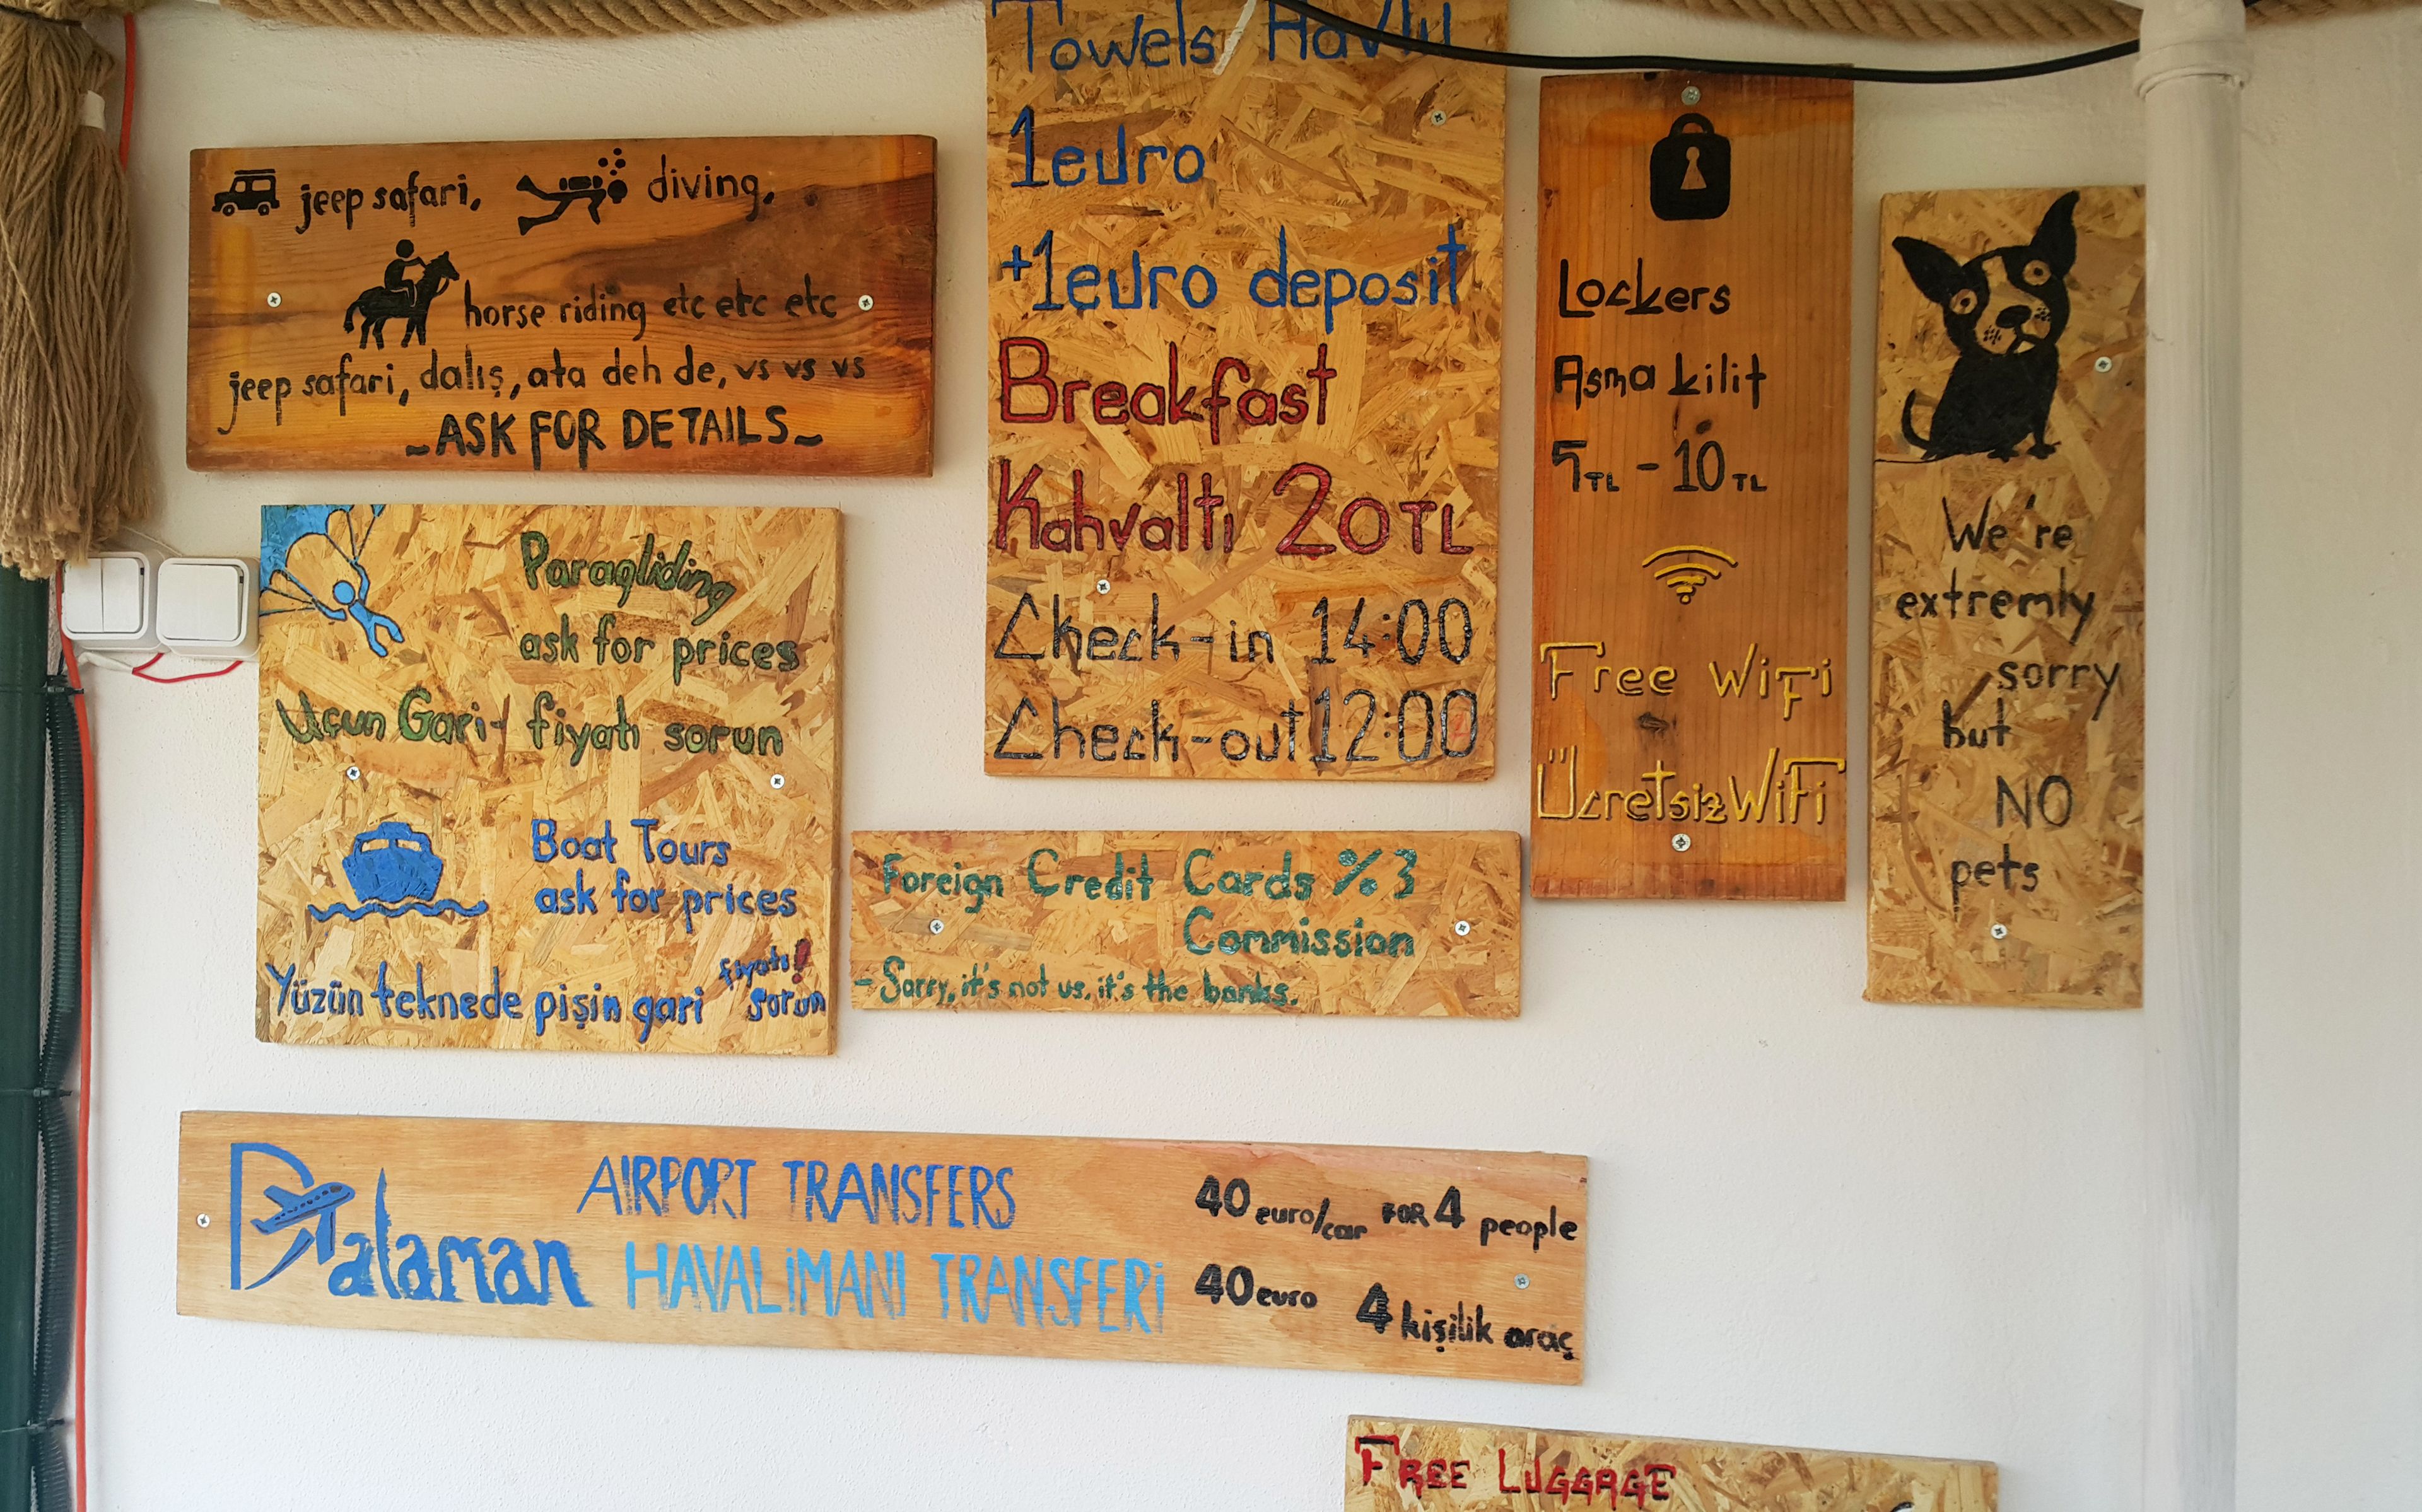 jeep safari, diving,
horse riding etc etc etc
jeep safari, dalış, ata deh de, vs vs vs
-ASK FOR DETAILS-
Paragliding
ask for prices
Uçun Gari- fiyatı sorun
Boat Tours
ask for prices
Yüzün teknede pişin gari fiyatı!
sorun
Towels Havlu
1euro
+1euro deposit
Breakfast
Kahvaltı 20TL
Check-in 14:00
Check-out 12:00
Foreign Credit Cards %3
Commission
- Sorry, it's not us, it's the banks.
Lockers
Asma kilit
5TL - 10TL
Free WiFi
Ücretsiz WiFi
We're
extremly
sorry
but
NO
pets
Dalaman
AIRPORT TRANSFERS
HAVALiMANI TRANSFERi
40 euro/car FOR 4 people
40euro 4 kişilik araç
FREE LUGGAGE